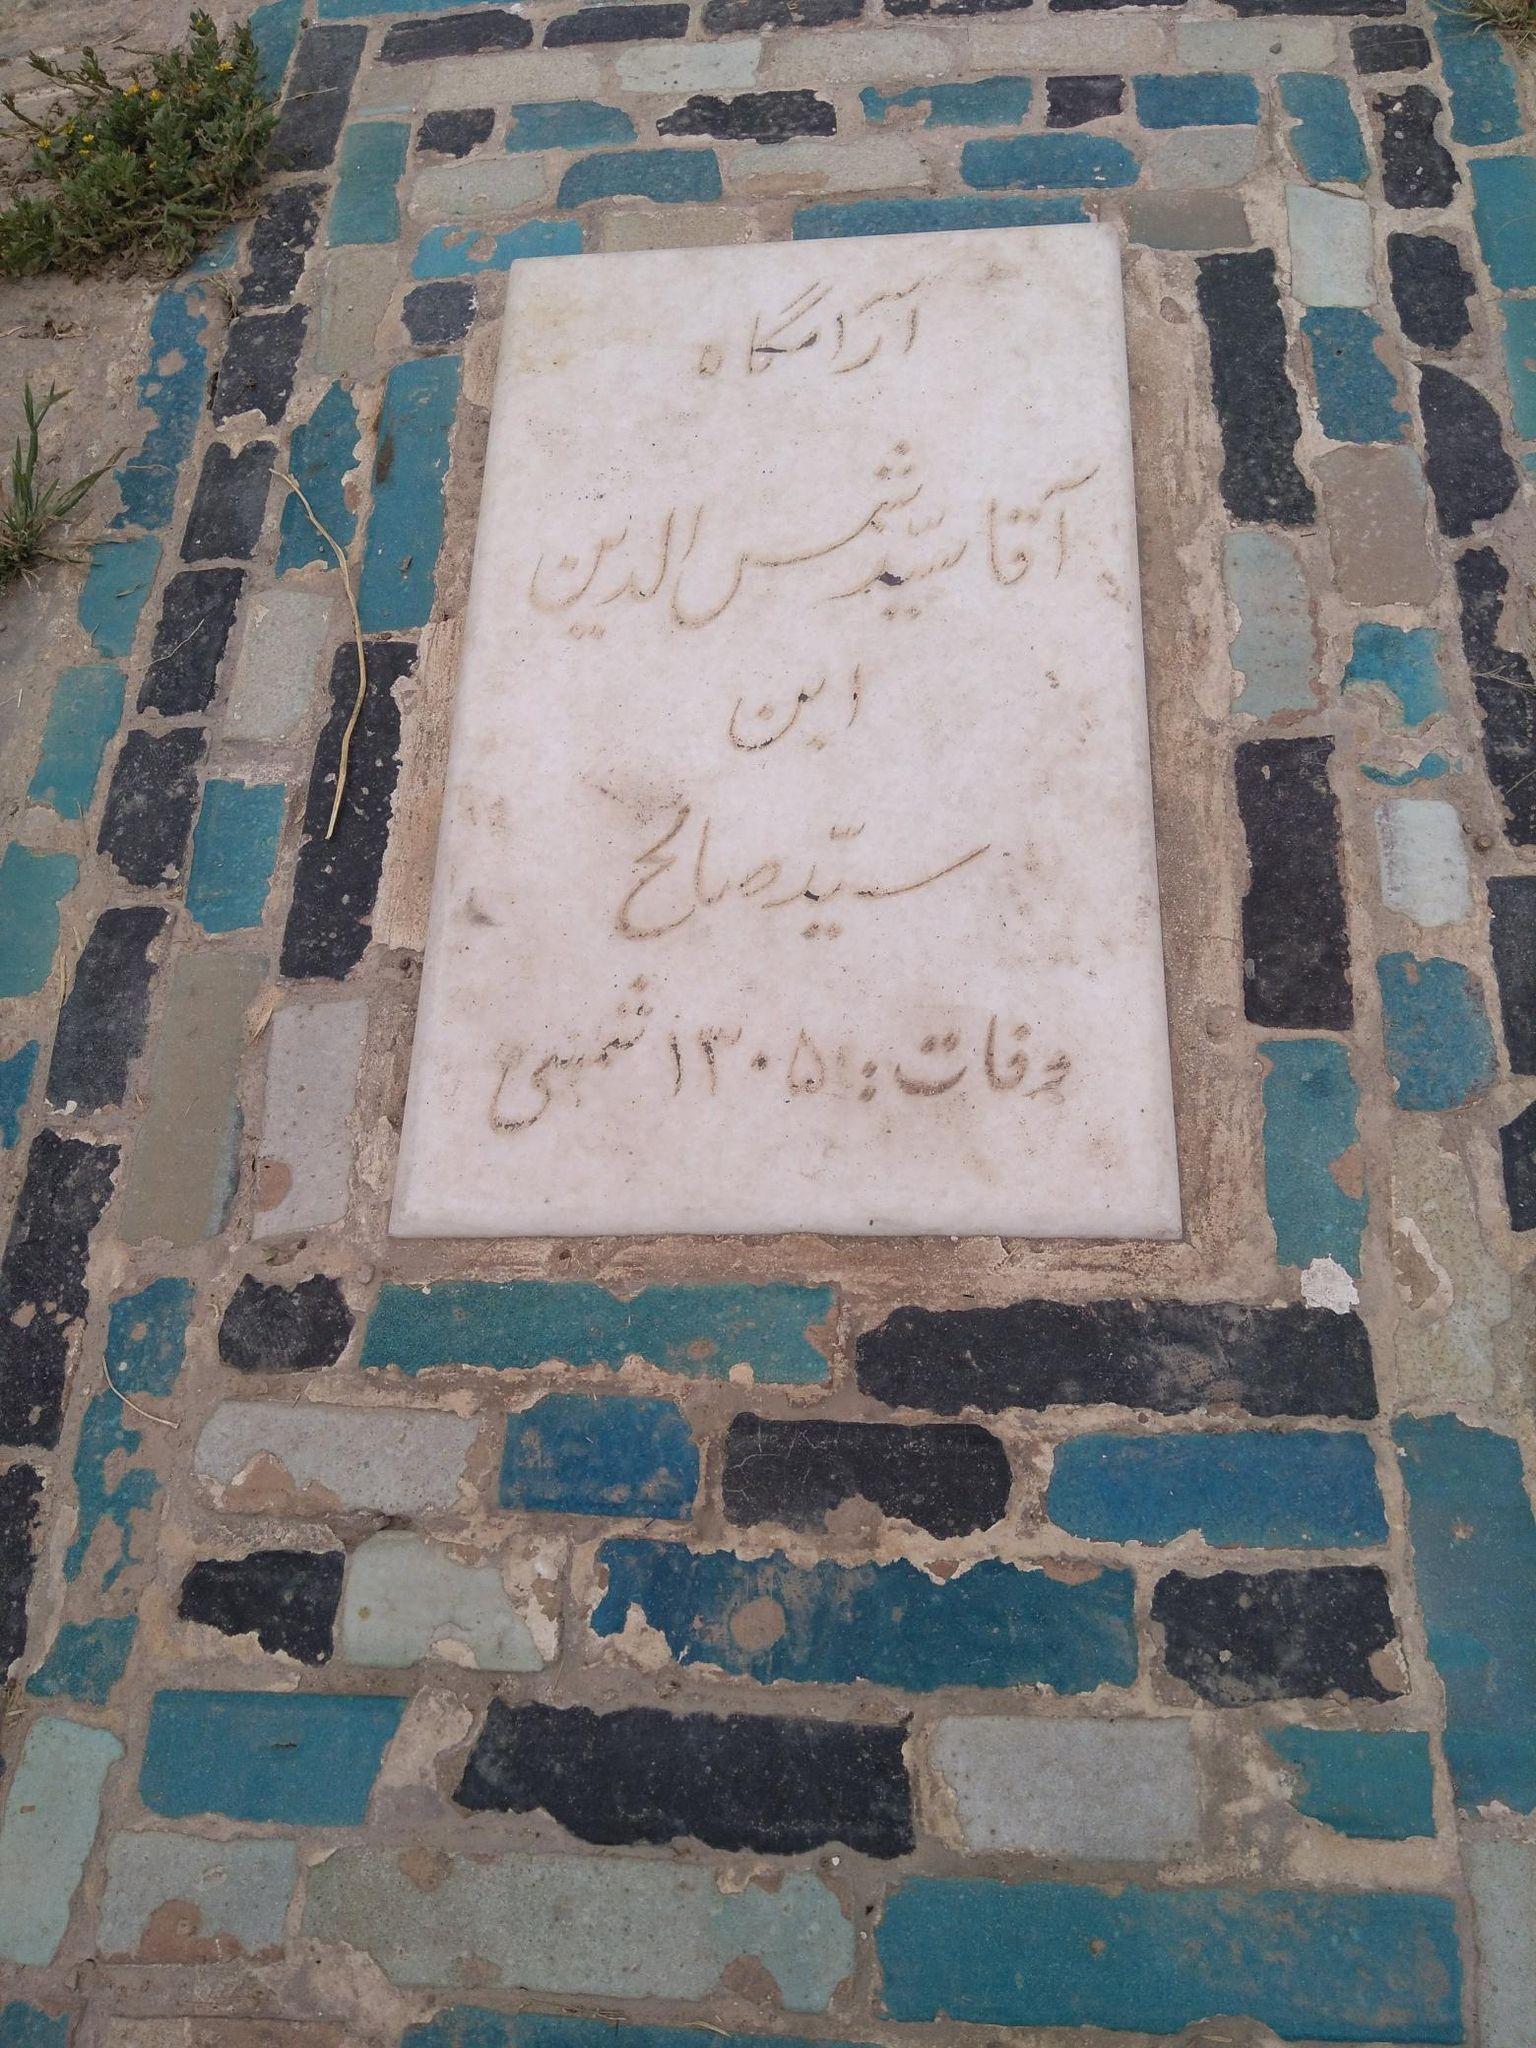 آرامگاه
آقا سیّد شمس الدین
ابن
سیّد صالح
وفات: ۱۳۰۵ شمسی